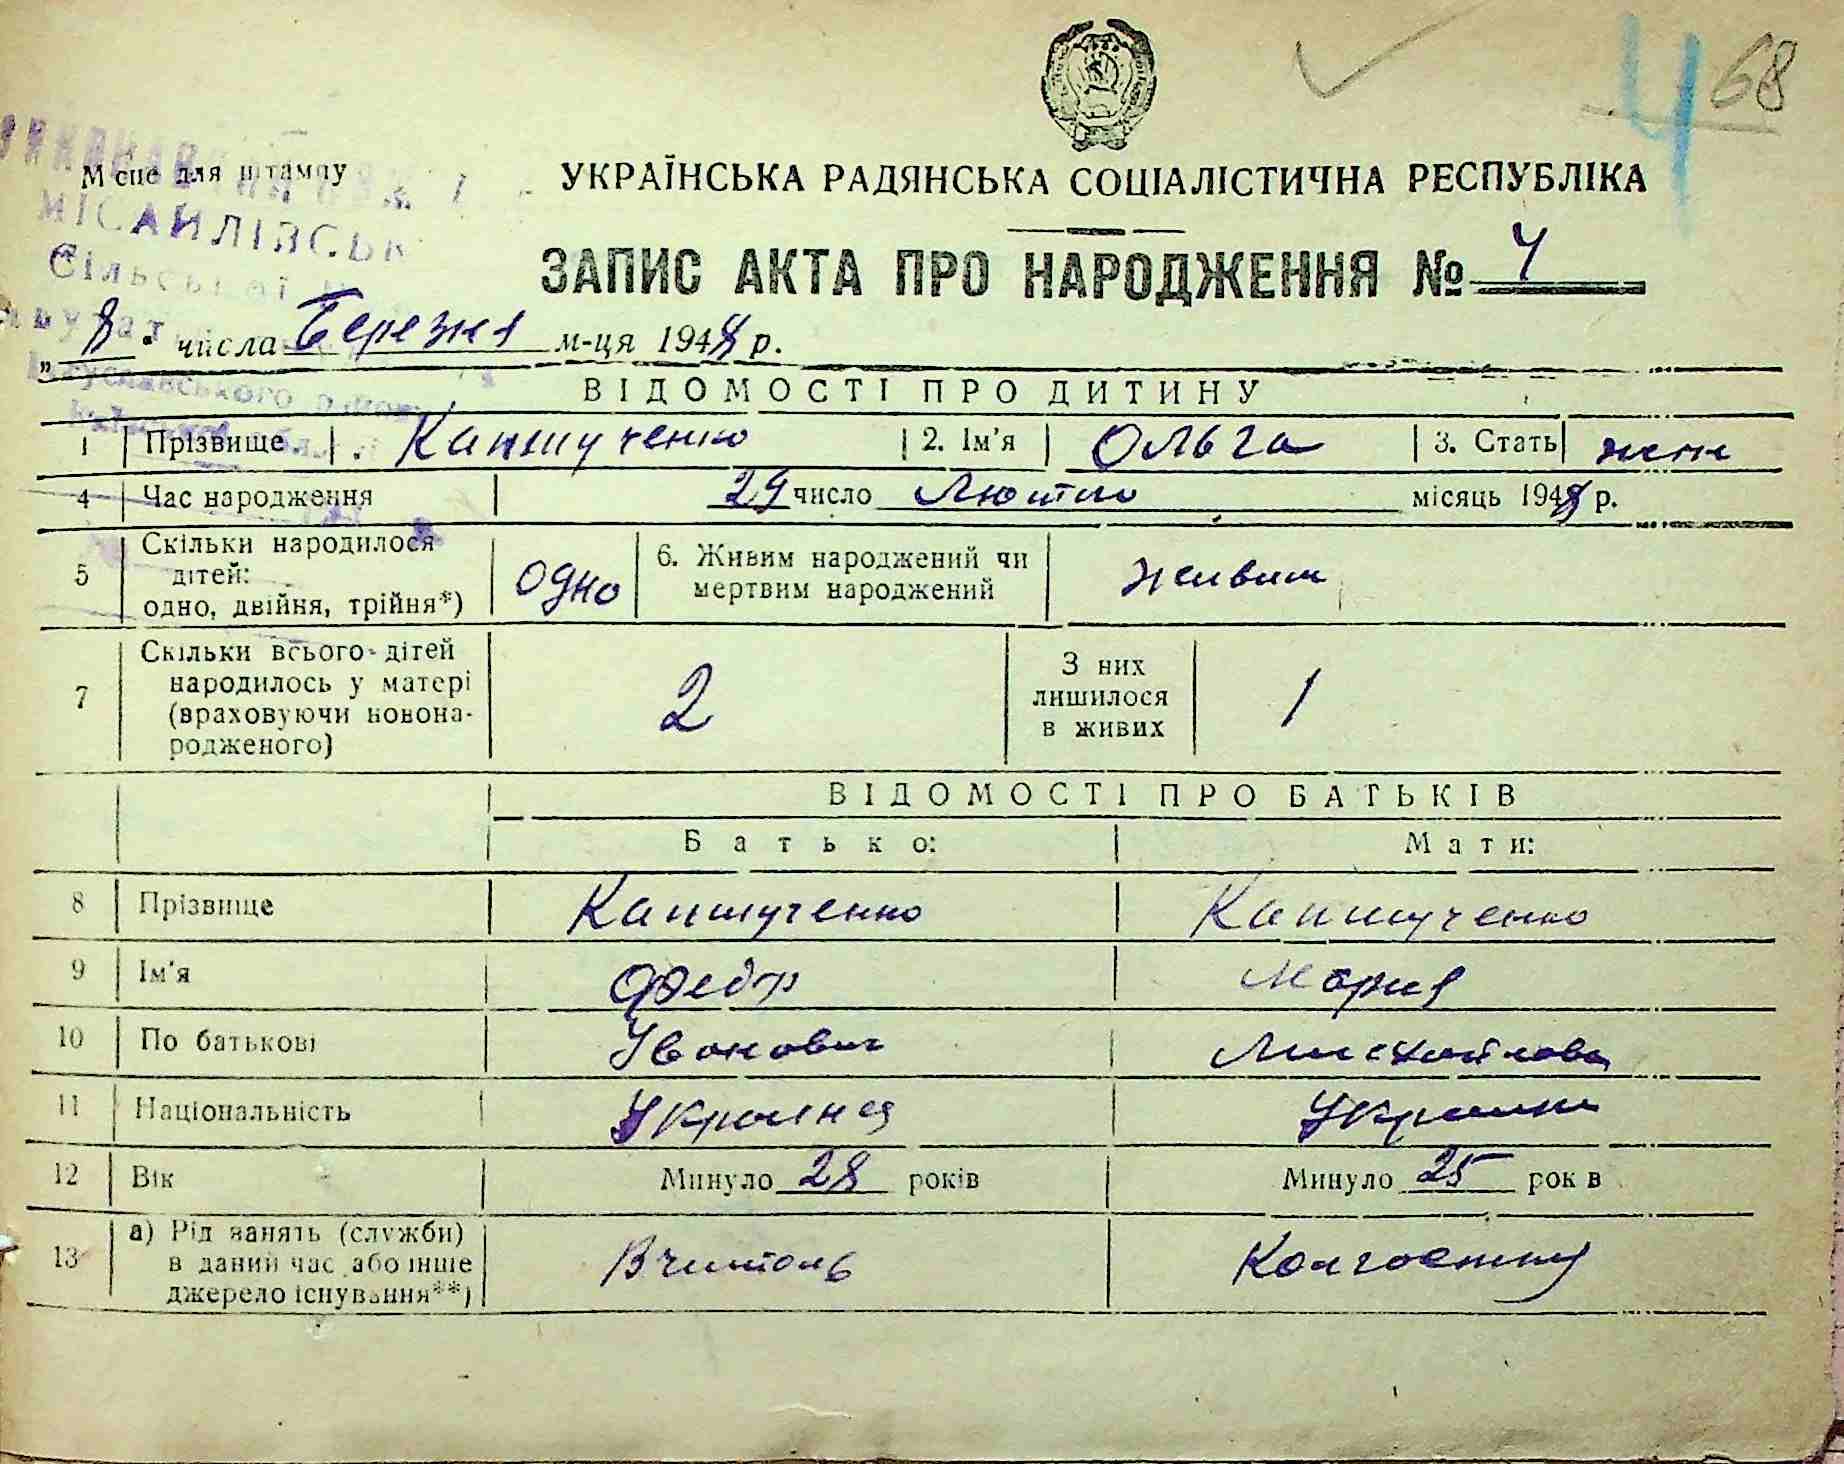 4 68
Місце для штампу
МІСАЙЛІВСЬК
Сільської
УКРАЇНСЬКА РАДЯНСЬКА СОЦІАЛІСТИЧНА РЕСПУБЛІКА
ЗАПИС АКТА ПРО НАРОДЖЕННЯ № 4
„8" числа Березня м-ця 1948 р.
Богуславського району
ВІДОМОСТІ ПРО ДИТИНУ
1 Прізвище Капшученко 2. Ім'я Ольга 3. Стать жін
4 Час народження 29 число Лютого місяць 1948 р.
5 Скільки народилося дітей: одно, двійня, трійня*) одно 6. Живим народжений чи мертвим народжений живим
7 Скільки всього дітей народилось у матері (враховуючи новона-родженого) 2 З них лишилося в живих 1
ВІДОМОСТІ ПРО БАТЬКІВ
Батько: Мати:
8 Прізвище Капшученко Капшученко
9 Ім'я Федір Мария
10 По батькові Іванович Михайлова
11 Національність Україна Україн
12 Вік Минуло 28 років Минуло 25 рок в
13 а) Рід занять (служби) в даний час або інше джерело існування**) Вчитель Колгоспниц